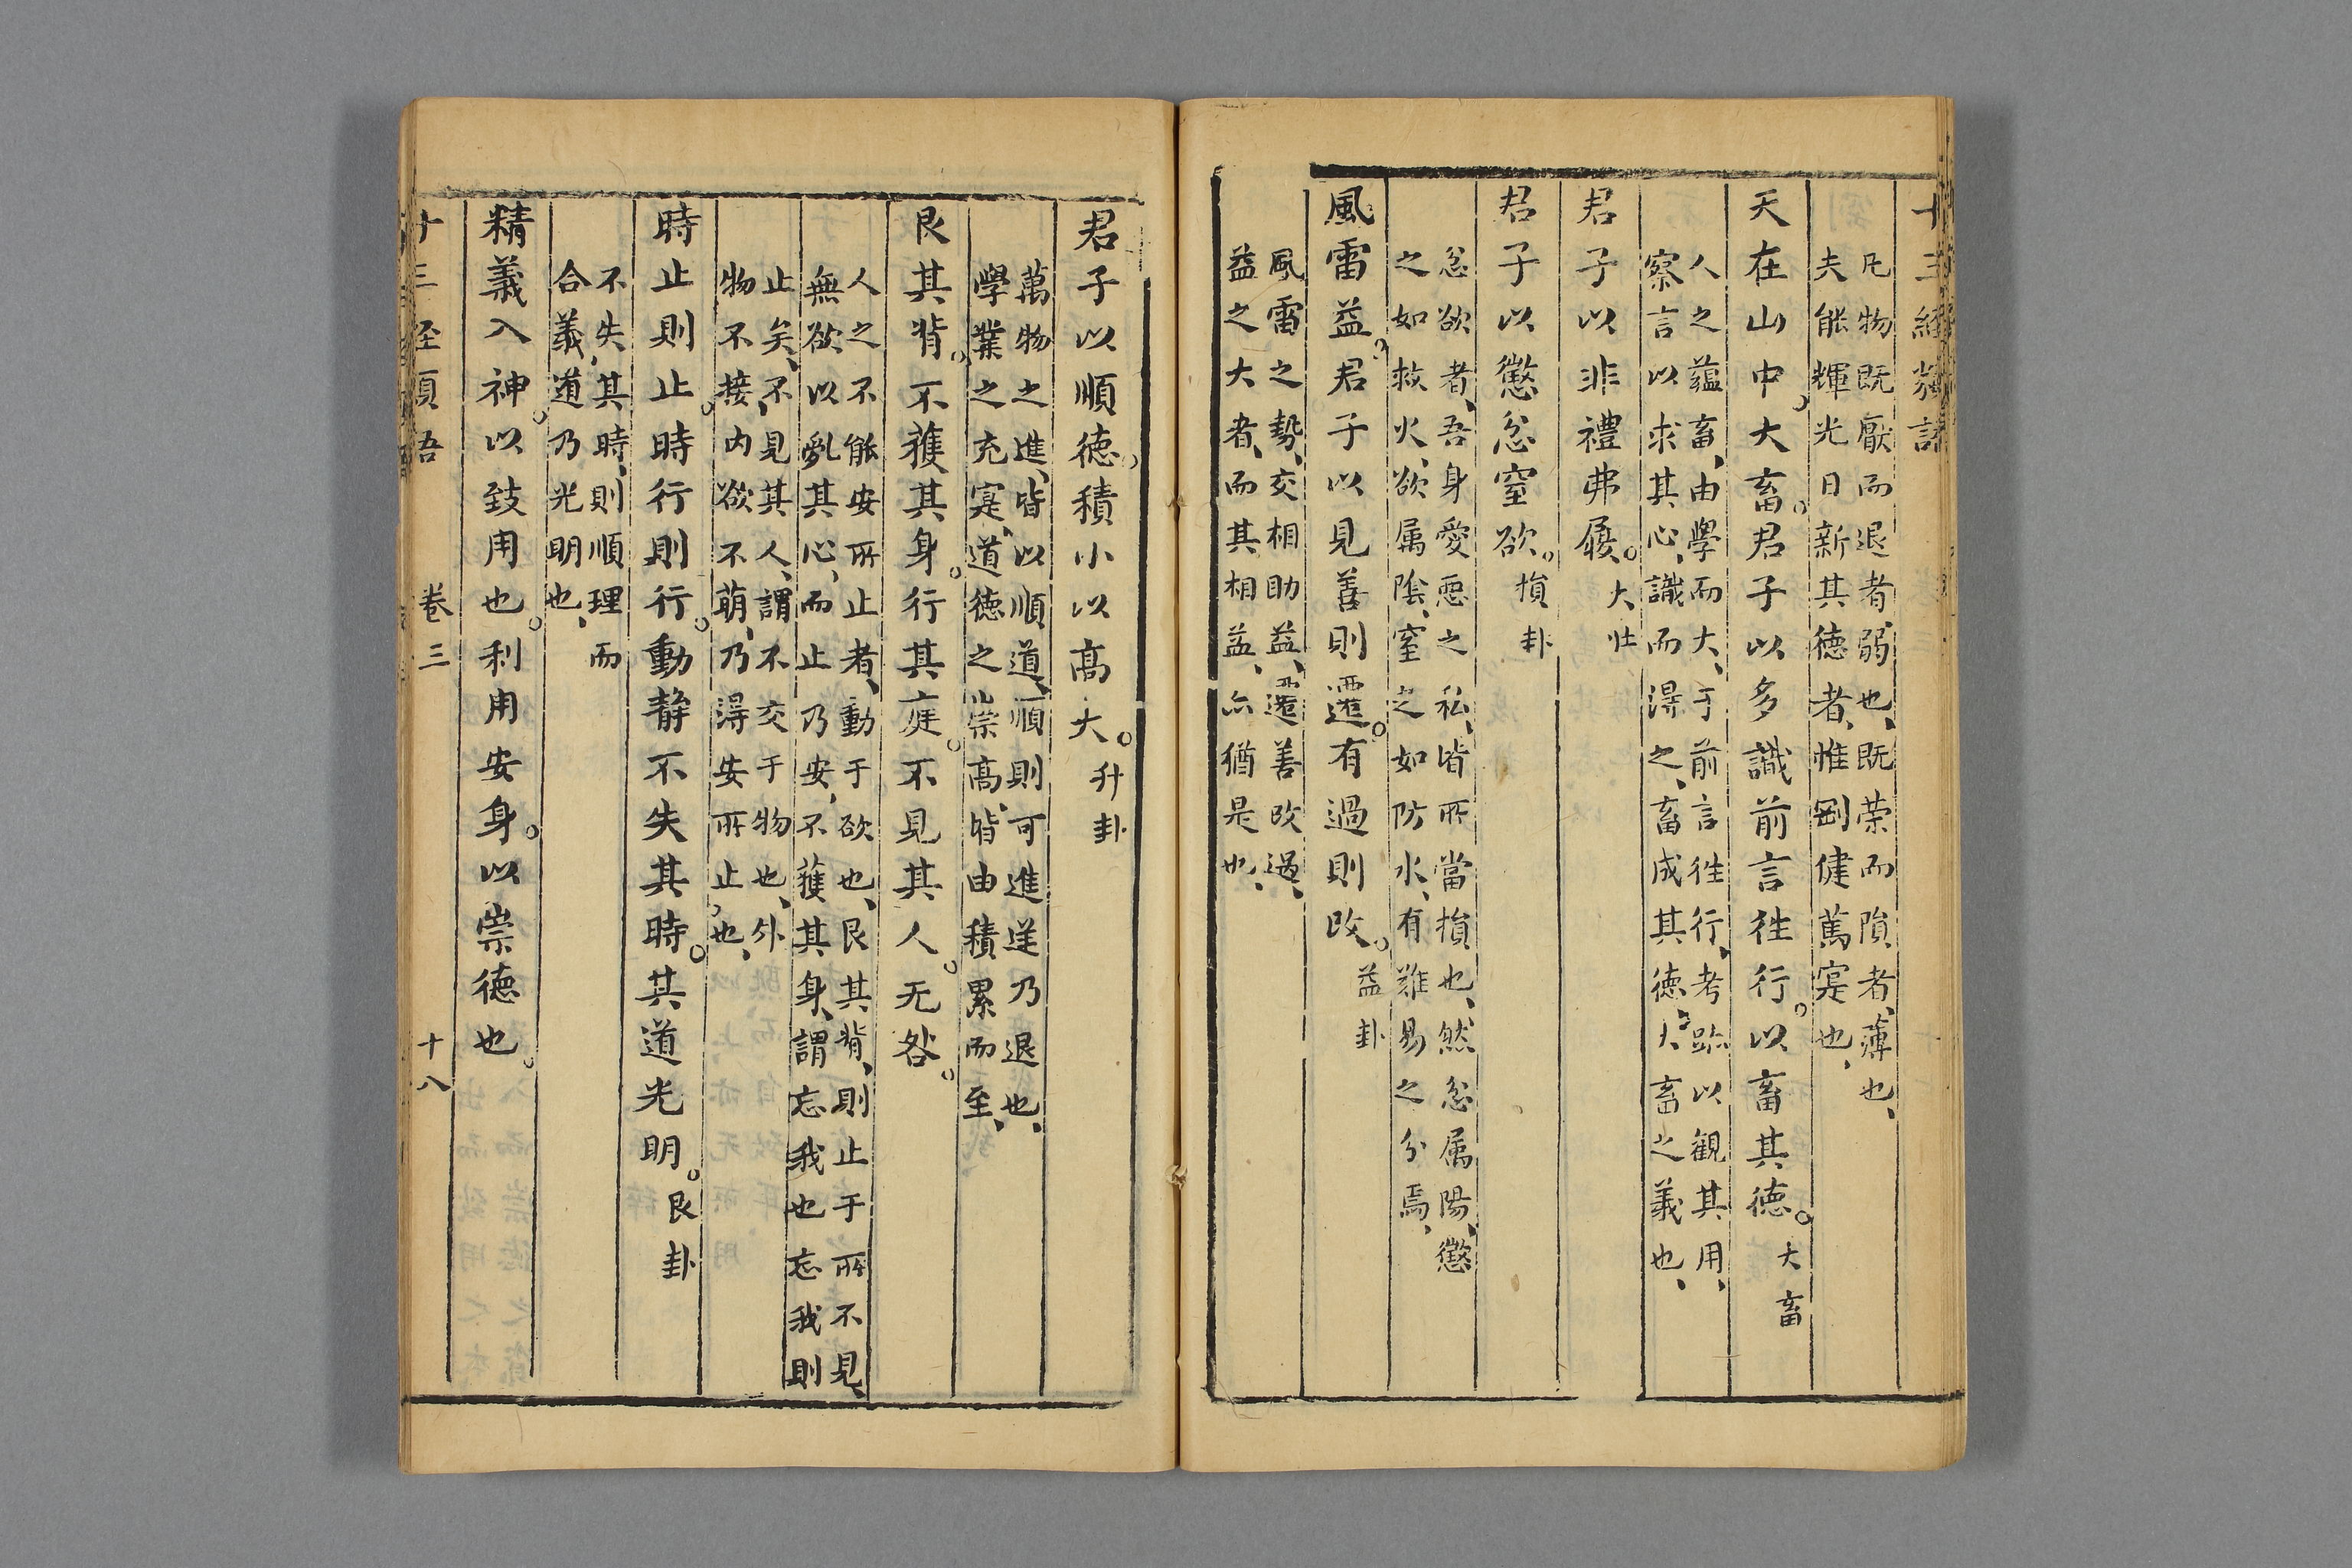 十三經類語
凡物既厭而退者、弱也、既荣而隕者、薄也、
夫能輝光日新其德者、惟剛健篤寔也、
天在山中。大畜。君子以多識前言徃行。以畜其德。大畜
人之蘊畜、由學而大、于前言徃行、考跡以観其用、
察言以求其心、識而淂之、畜成其德、大畜之義也、
君子以非禮弗履。大壮
君子以懲忿窒欲。損卦
忿欲者、吾身愛惡之私、皆所當損也、然忿属陽、懲
之如救火、欲属陰、窒之如防水、有難易之分焉、
風雷益。君子以見善則遷。有過則改。益卦
風雷之勢、交相助益、遷善改過、
益之大者、而其相益、亦猶是也、
君子以順德。積小以高大。升卦
萬物之進、皆以順道、順則可進逆乃退也、
學業之充寔、道德之崇高、皆由積累而至、
艮其背。不獲其身。行其庭。不見其人。无咎。
人之不能安所止者、動于欲也、艮其背、則止于所不見、
無欲以亂其心、而止乃安、不獲其身、謂忘我也忘我則
止矣、不見其人、謂不交于物也、外
物不接、内欲不萌、乃淂安所止也、
時止則止。時行則行。動静不失其時。其道光明。艮卦
不失其時、則順理而
合義、道乃光明也、
精義入神。以致用也。利用安身。以崇德也。
十三経類語 卷三 十八